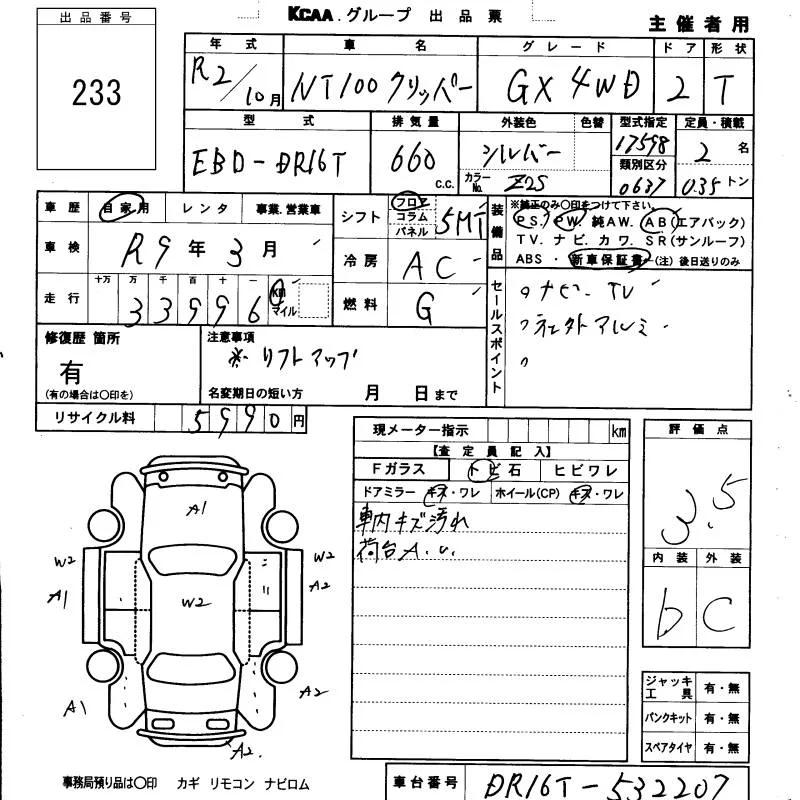 KCAA グループ 出品票
主催者用
出品番号
233
年式 車名 グレード ドア 形状
R2/10月 NT100 クリッパー GX 4WD 2 T
型式 排気量 外装色 色替 型式指定 定員・積載
EBD-DR16T 660 c.c. シルバー 17598 2 名
カラーNo. Z2S 類別区分 0637 0.35 トン
車歴 自家用 レンタ 事業.営業車
車検 R9 年 3 月
走行 十万 万 千 百 十 一
33996 km マイル
シフト フロア コラム パネル 5MT
冷房 AC
燃料 G
装備品 ※純正のみ〇印をつけて下さい。
PS. PW. 純AW. AB(エアバック)
TV. ナビ. カワ. SR(サンルーフ)
ABS ・ 新車保証書 (注) 後日送りのみ
セールスポイント
ナビ・TV
社外アルミ
修復歴 箇所
有
(有の場合は〇印を)
注意事項
※ リフトアップ
名変期日の短い方 月 日まで
リサイクル料 5990 円
現メーター指示 km
【査定員記入】
Fガラス トビ石 ヒビワレ
ドアミラー キズ・ワレ ホイール(CP) キズ・ワレ
車内キズ汚れ
荷台A.U.
評価点
3.5
内装 外装
b C
A1
W2 W2
A1 W2 A2
A1 A2
A2.
ジャッキ工具 有・無
パンクキット 有・無
スペアタイヤ 有・無
事務局預り品は〇印 カギ リモコン ナビロム
車台番号 DR16T-532207